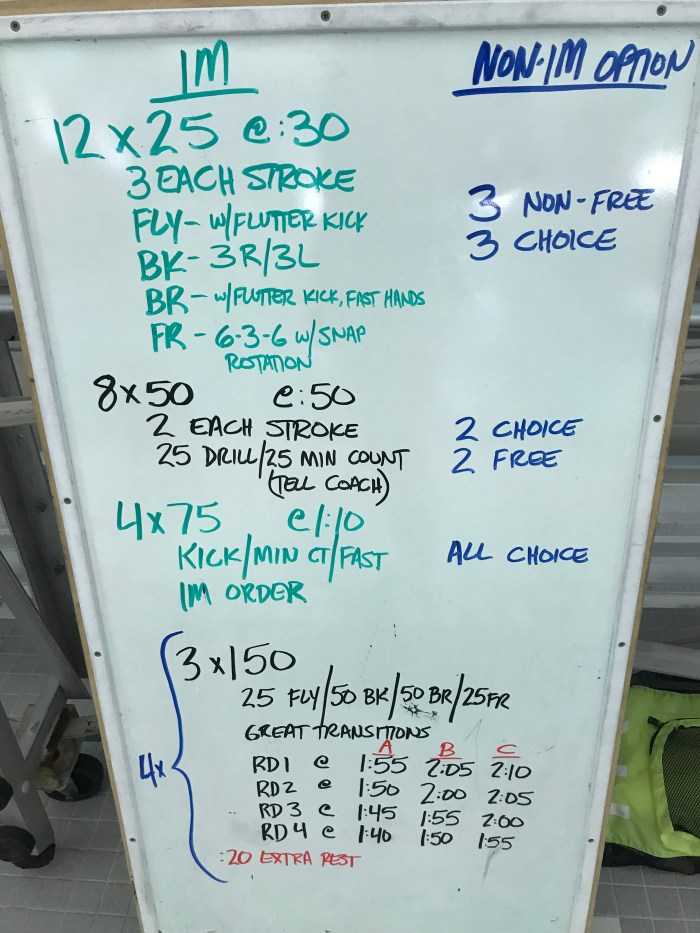 IM
NON-IM OPTION
12 x 25 @ :30
3 EACH STROKE
FLY - W/FLUTTER KICK
3 NON-FREE
BK - 3R/3L
3 CHOICE
BR - W/FLUTTER KICK, FAST HANDS
FR - 6-3-6 W/SNAP
ROTATION
8 x 50 @ :50
2 EACH STROKE
2 CHOICE
25 DRILL/25 MIN COUNT
2 FREE
(TELL COACH)
4 x 75 @ 1:10
KICK/MIN CT/FAST
ALL CHOICE
IM ORDER
4x
3 x 150
25 FLY/50 BK/50 BR/25 FR
GREAT TRANSITIONS
A B C
RD1 @ 1:55 2:05 2:10
RD2 @ 1:50 2:00 2:05
RD3 @ 1:45 1:55 2:00
RD4 @ 1:40 1:50 1:55
:20 EXTRA REST